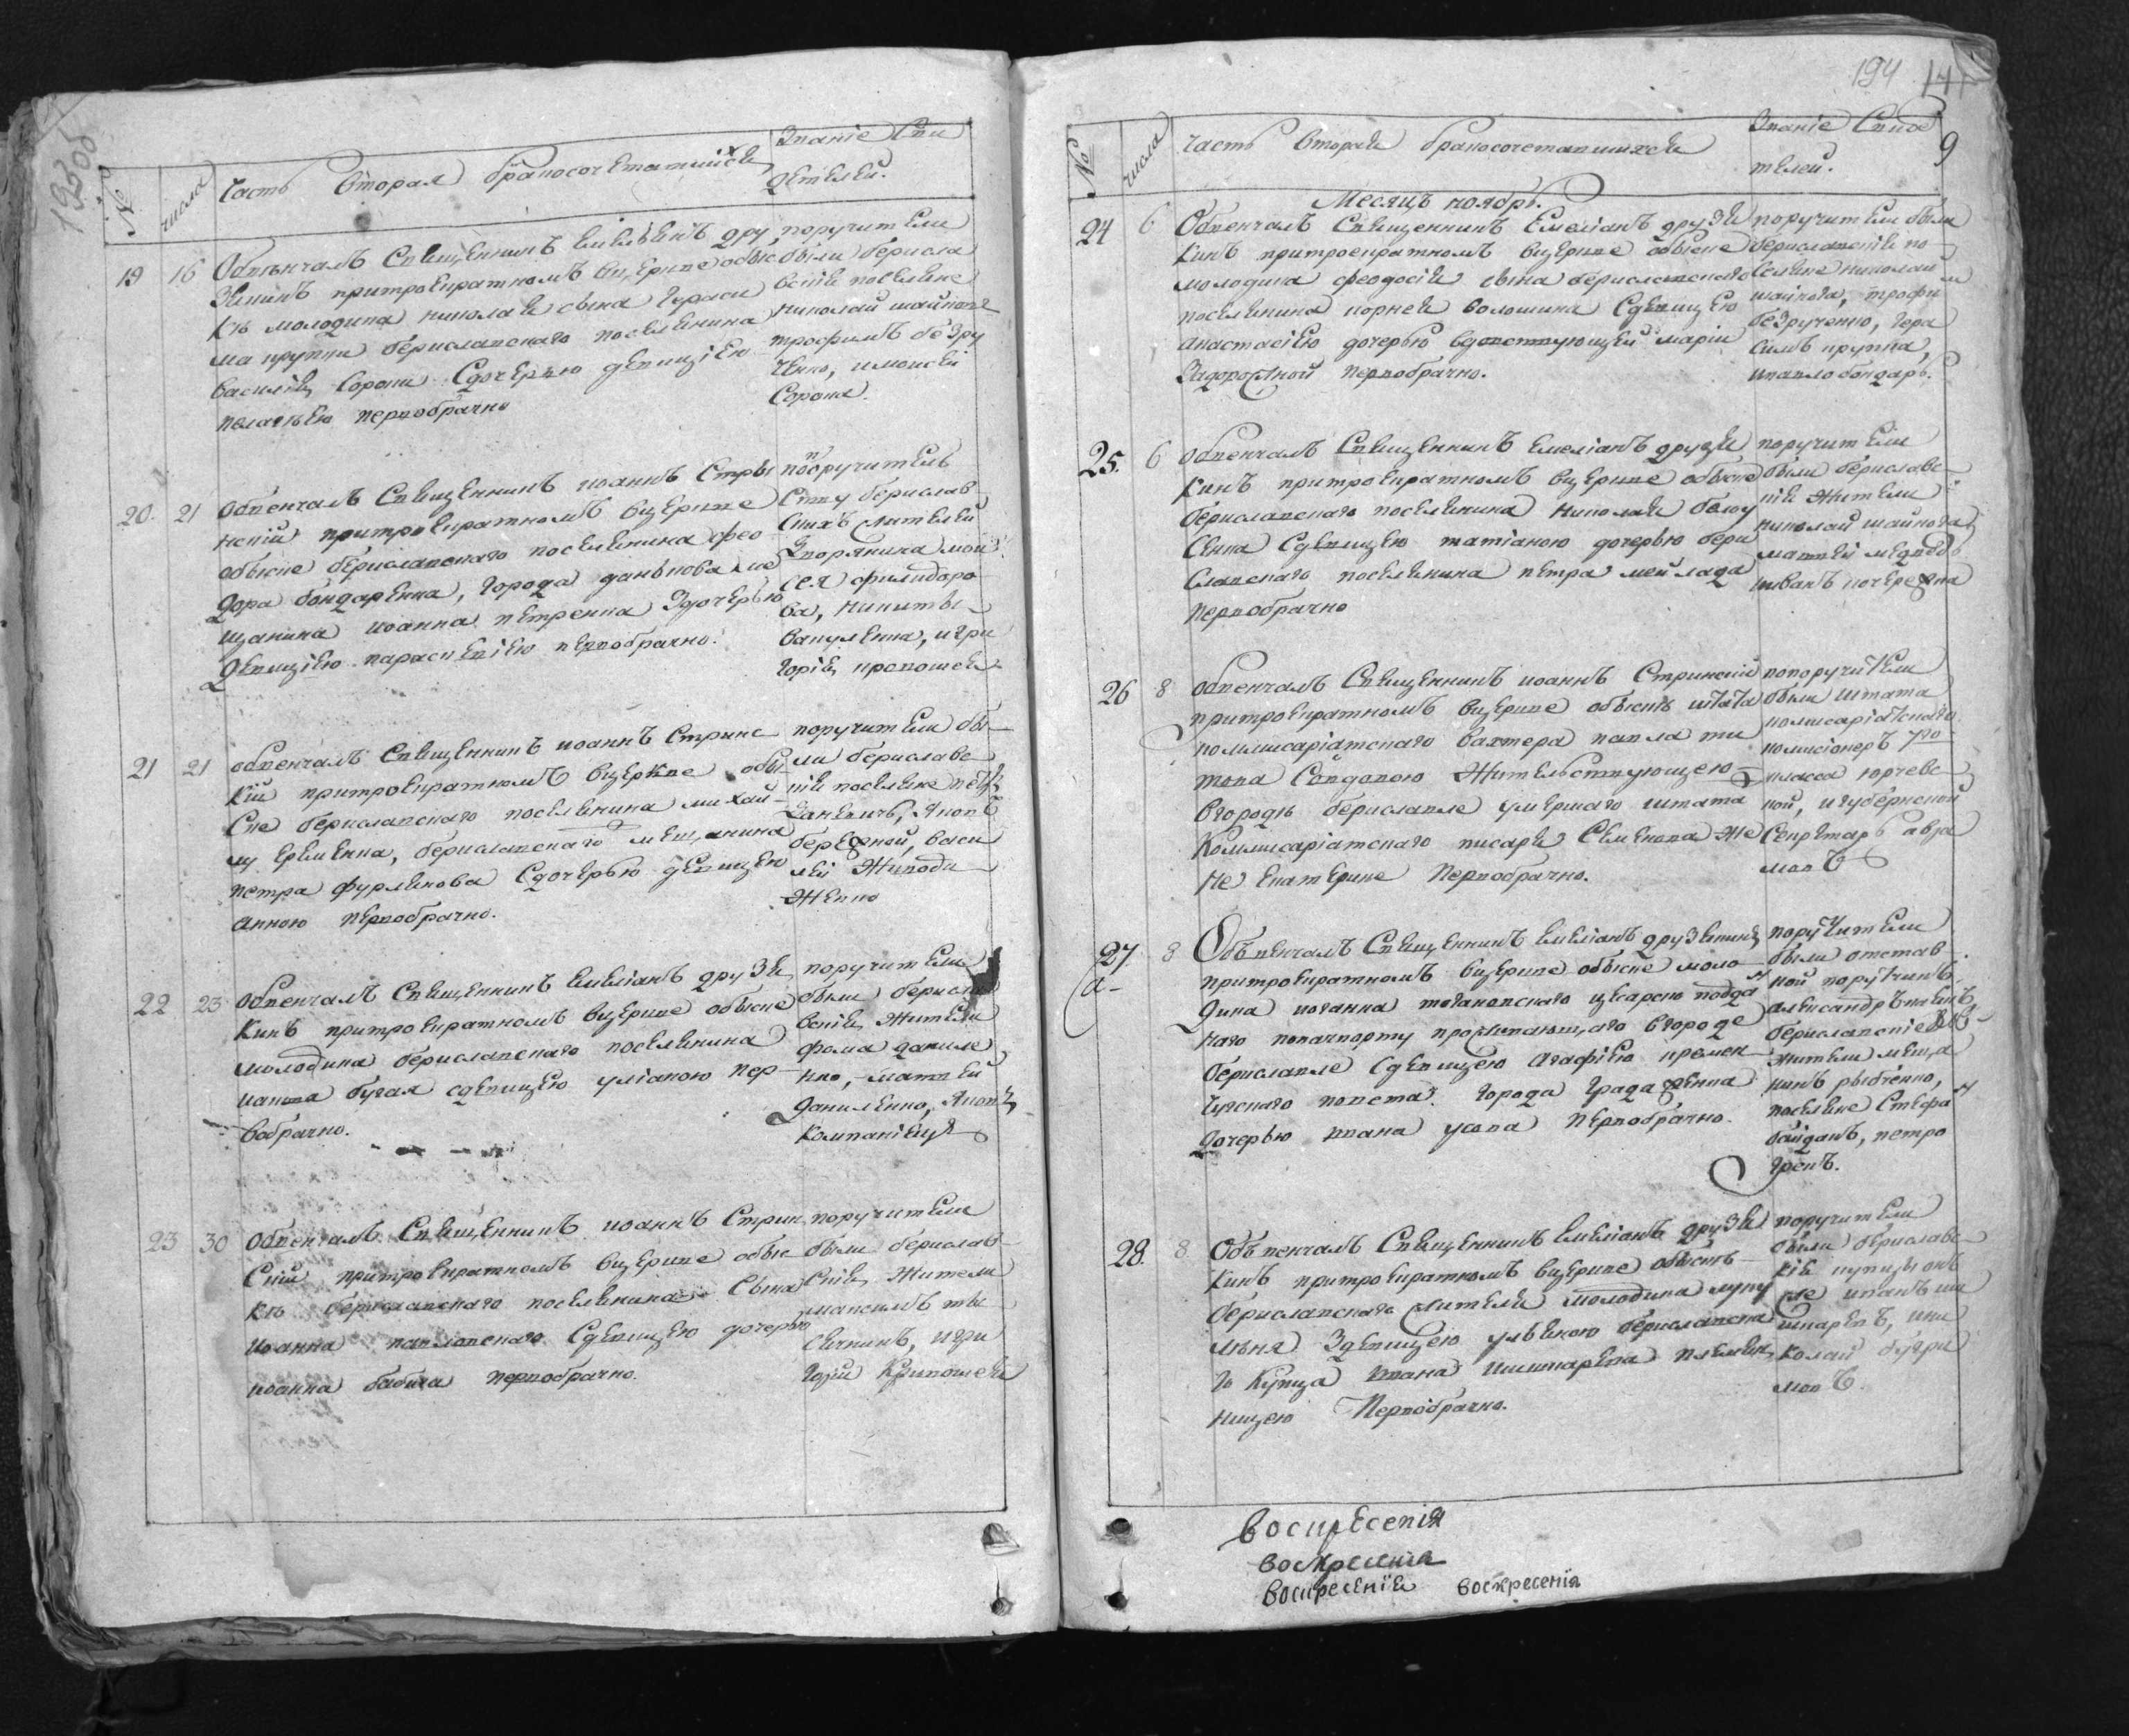 193об
№
числа
Часть вторая бракосочетавшихся
Знаніе Сви
детелей.
19 16 Обвѣнчалъ Священникъ Емелѣянъ дру
зякинъ притроицратномъ вцеркве объис
къ молодика николая сына Гераси
ма крупки бериславскаго поселянина
василія Сороки Сдочерью девицiею
пелагѣею первобрачно
поручители
были берисла
вскіе поселяне
николай шайнога
трофимъ безру
ченко, имоисей
Сорока.
20. 21 Обвенчалъ Священникъ иоаннъ Стры
нскій притроицратномъ вцеркве
объисне бериславскаго поселянина фео
дора бондаренка, города данькова ме
щанина иоанна петренка Здочерью
девицiею параскевiею первобрачно.
поручитель
Сту берислав
скихъ жителей
дворянина мои
сея филидоро
ва, никиты
вакуленка, игри
горія кравошея
21 21 обвенчалъ Священникъ иоаннъ Стринс
кій притроицратномъ вцеркве объи
сне бериславскаго поселянина михай
лу еременка, бериславскаго мещанина
петра фурлянова Сдочерью девицею
анною первобрачно.
поручители бы
ли бериславс
кіе поселяне петръ
Занкевичь, Яковъ
бережной, васи
лей Живоди
женко
22 23 обвенчалъ Священникъ Емеліанъ друзя
кинъ притроицратномъ вцеркве объисне
молодика бериславскаго поселянина
ивана бугая сдевицею уліаною пер
вобрачно.
поручители
были берисла
вскіе Жители
фома данилe
нко, матвей
Даниленко, Яковъ
Компаніецъ
23 30 обвенчалъ Священникъ иоаннъ Стрин
скій притроицратномъ вцеркве объис
не бериславскаго поселянина Сына
иоанна павловскаго Сдевицею дочерью
иоанна бабича первобрачно.
поручители
были берислав
скіе Жители
максимъ ты
сячникъ, игри
горій Кривошея
194 141
9
№
числа
часть вторая бракосочетавшихся
Знаніе Свиде
телей.
Месяцъ ноябрь.
24 6 Обвенчалъ Священникъ Емеліанъ друзя
кинъ притроицратномъ вцеркве объисне
молодика феодосія сына бериславскаго
поселянина корнея волошина Сдевицею
анастасіею дочерью вдовствующей маріи
Задорожной первобрачно.
поручители были
бериславскіе по
селяне николай
шайнога, трофим
безрученко, гера
симъ крупка,
ипавло бондарь.
25. 6 обвенчалъ Священникъ Емеліанъ друзя
кинъ притроицратномъ вцеркве объисне
бериславскаго поселянина николая белоу
сенка Сдевицею татіаною дочерью бери
славскаго поселянина петра мейлада
первобрачно
поручители
были бериславс
кіе жители
николай шайнога
матвей медведь
иванъ кочережка
26 8 обвенчалъ Священникъ иоаннъ Стринскій
притроицратномъ вцеркве объиснъ штата
комиссаріатскаго вахтера павла ти
това Сондовою Жительствующею
вгородѣ бериславле умершаго штата
Коммисаріатскаго писаря Семенова же
не екатерине первобрачно.
попоручители
были штата
комисаріатскаго
комисіонеръ 7го
класса юргевс
кой, игубернской
Секретарь авра
мовъ
27. 8 Объвенчалъ Священникъ Емеліанъ друзякинъ
а-
притроицратномъ вцеркве объисне моло
дика иоанна токановскаго цесарско подда
наго попачпорту проживающаго вгороде
бериславле Сдевицею агафіею кремен
чугскаго повета города Градижска
дочерью ивана усова первобрачно.
поручители
были отстав
ной порутчикъ
александръ
бериславскіе
жители меща
нинъ рыбченко,
поселяне Стефан
байдакъ, петро
грекъ.
28. 8 Объвенчалъ Священникъ Емеліанъ друзя
кинъ притроицратномъ вцеркве объиснъ
бериславскаго жителя молодика луку
мѣня Здевицею улѣяною бериславска
го Купца ивана шишкарева племян
ницею Первобрачно.
поручители
были бериславс
кіе купцы онъ
же иванъ ши
шкаревъ, ини
колай бугри
мовъ.
воскресенія
воскресенія
воскресенія воскресенія